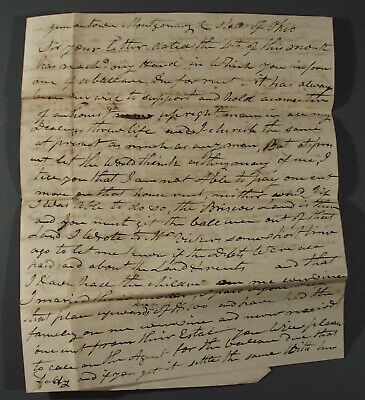 Germantown Montgomery C State of Ohio
Sir your letter dated the 4th of this month
has reach my Hand, in which you inform
me of a ballance Due for rent - it has always
been my wish to support and hold a carracter
of an honest upright man in all my
Dealings through life and I cherish the same
at present as much as any man, But at pres
ent let the World think as they may of me, I
tell you that I am not Able to pay one cent
more on that house rent, neither would I if
I was able to do so, the Briscoe Land is there
and you must git the ballance out of that
Land I wrote to Mr Vickers some short time
ago to let me know if the Debts were
paid and about the Land & rents and that
I have had the children on me ever since I
married
that place upwards of and have had the
family on me ever since and never received
one cent from their Estate you will please
to call on the Agent for the ballance due that
Lady and if you git it settle the same with